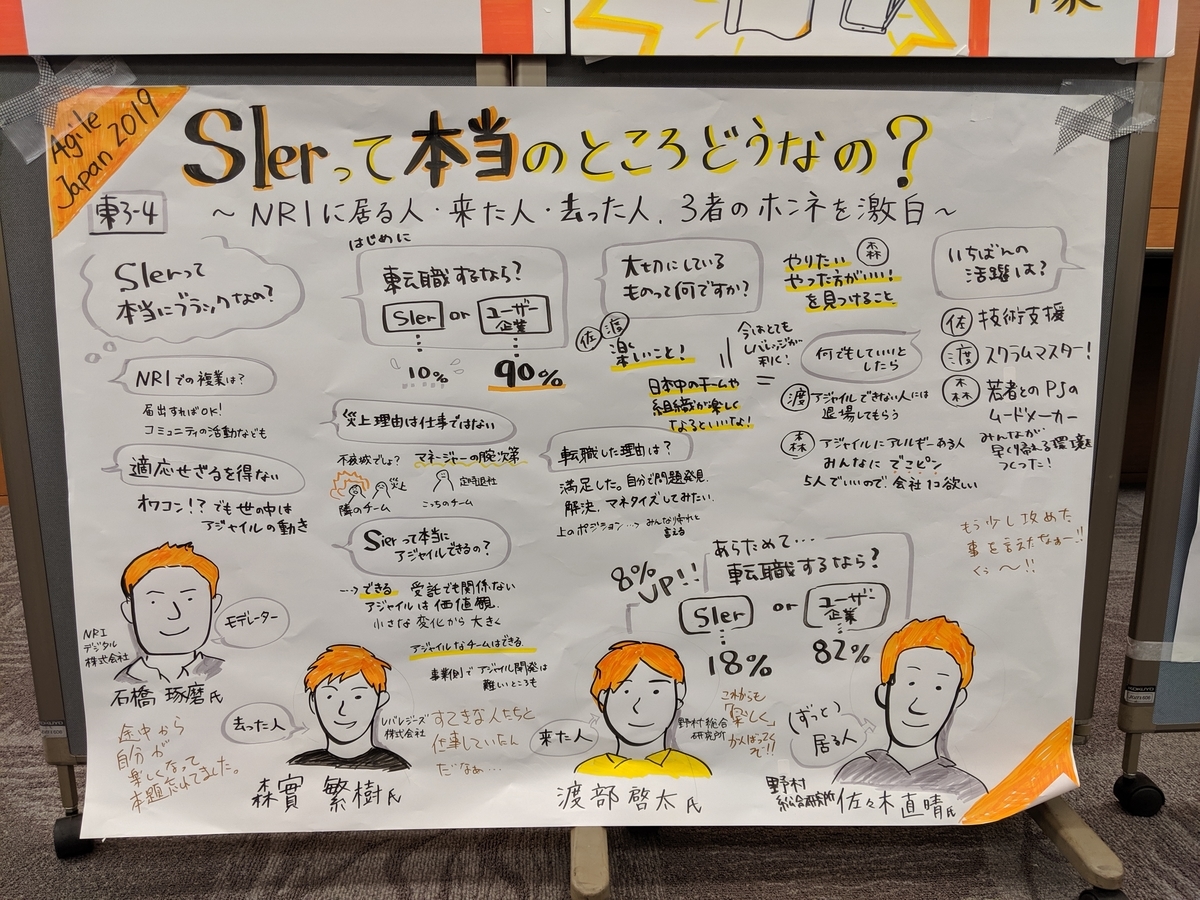 Agile
Japan 2019
SIerって本当のところどうなの?
東3-4
～NRIに居る人・来た人・去った人、3者のホンネを激白～
SIerって
本当にブラックなの?
NRIでの複業は?
届出すればOK!
コミュニティの活動なども
適応せざるを得ない
オワコン!?でも世の中は
アジャイルの動き
はじめに
転職するなら?
SIer or ユーザー
企業
10%
90%
炎上理由は仕事ではない
不夜城でしょ?
マネージャーの腕次第
炎上
定時退社
隣のチーム
こっちのチーム
SIerって本当に
アジャイルできるの?
…→できる 受託でも関係ない
アジャイルは価値観.
小さな変化から大きく
アジャイルなチームはできる
事業側でアジャイル開発は
難しいところも
大切にしている
ものって何ですか?
佐 渡
楽しいこと!
日本中のチームや
組織が楽しく
なるといいな!
今はとても
レバレッジが
利く!
森
やりたい
やった方がいい!
を見つけること
転職した理由は?
満足した。自分で問題発見.
解決、マネタイズしてみたい.
上のポジション…→
言える
何でもしていいと
したら
渡 アジャイルできない人には
退場してもらう
森 アジャイルにアレルギーある人
みんなに でこピン
5人でいいので、会社1コ欲しい
いちばんの
活躍は?
佐 技術支援
渡 スクラムマスター!
森 若者とのPJの
ムードメーカー
みんなが
早く帰れる環境を
つくった!
もう少し攻めた
事を言えたなぁー!!
くぅ～!!
あらためて…
転職するなら?
8%
UP!!
SIer or ユーザー
企業
18%
82%
モデレーター
NRI
デジタル
株式会社
石橋 琢磨氏
途中から
自分が
楽しくなって
本題忘れてました。
去った人
レバレジーズ
株式会社
森實 繁樹氏
すてきな人たちと
仕事していたん
だなぁ…
来た人
野村総合
研究所
渡部 啓太氏
これからも
「楽しく」
がんばってく
ぞ!!
(ずっと)
居る人
野村
総合研究所
佐々木 直晴氏